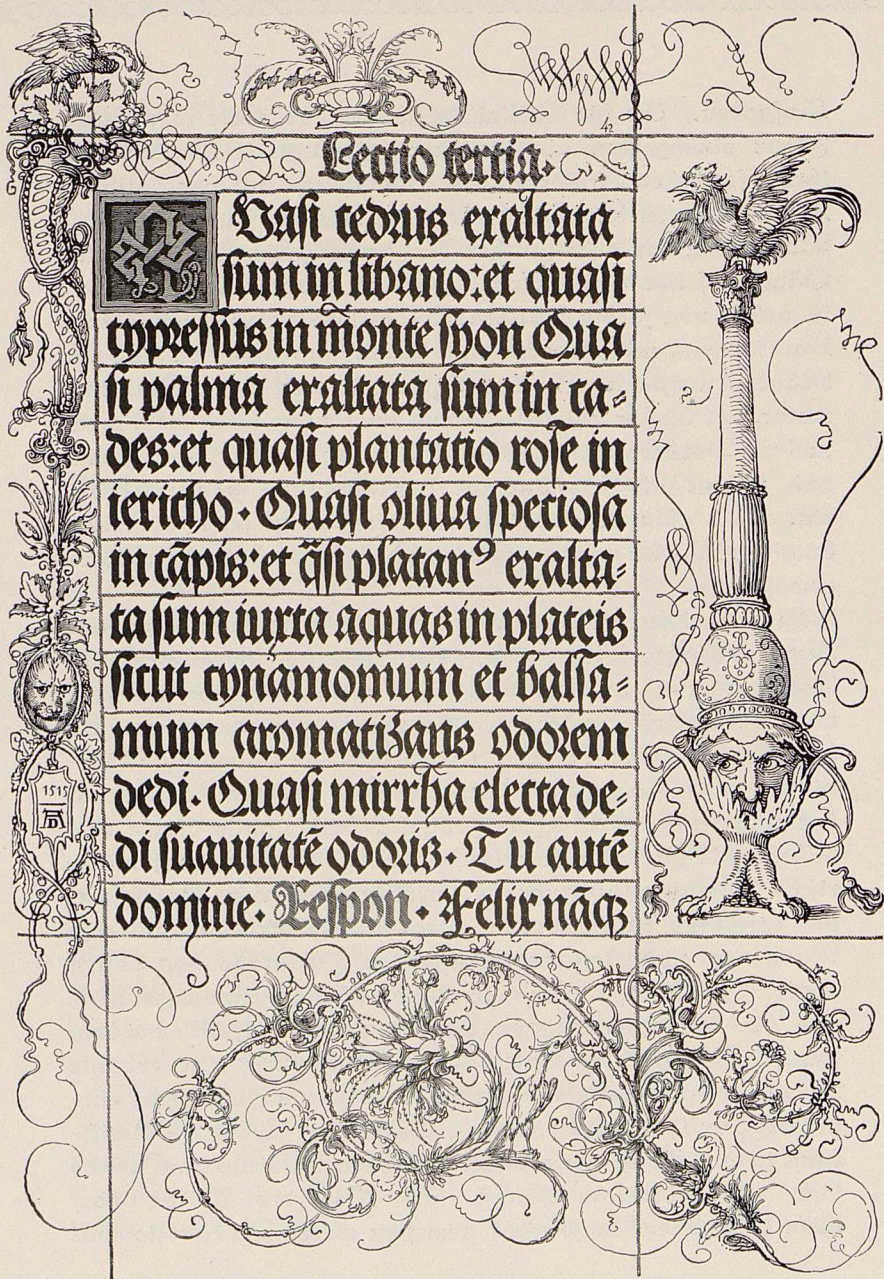 42
Lectio tertia.
QVasi cedrus exaltata
sum in libano: et quasi
cypressus in monte syon Qua
si palma exaltata sum in ca-
des: et quasi plantatio rose in
iericho. Quasi oliua speciosa
in cãpis: et q̃si platanꝰ exalta-
ta sum iuxta aquas in plateis
sicut cynamomum et balsa-
mum aromatizans odorem
dedi. Quasi mirrha electa de-
di suauitatē odoris. Tu autē
domine. Respon. Felix nāqꝫ
1515
AD